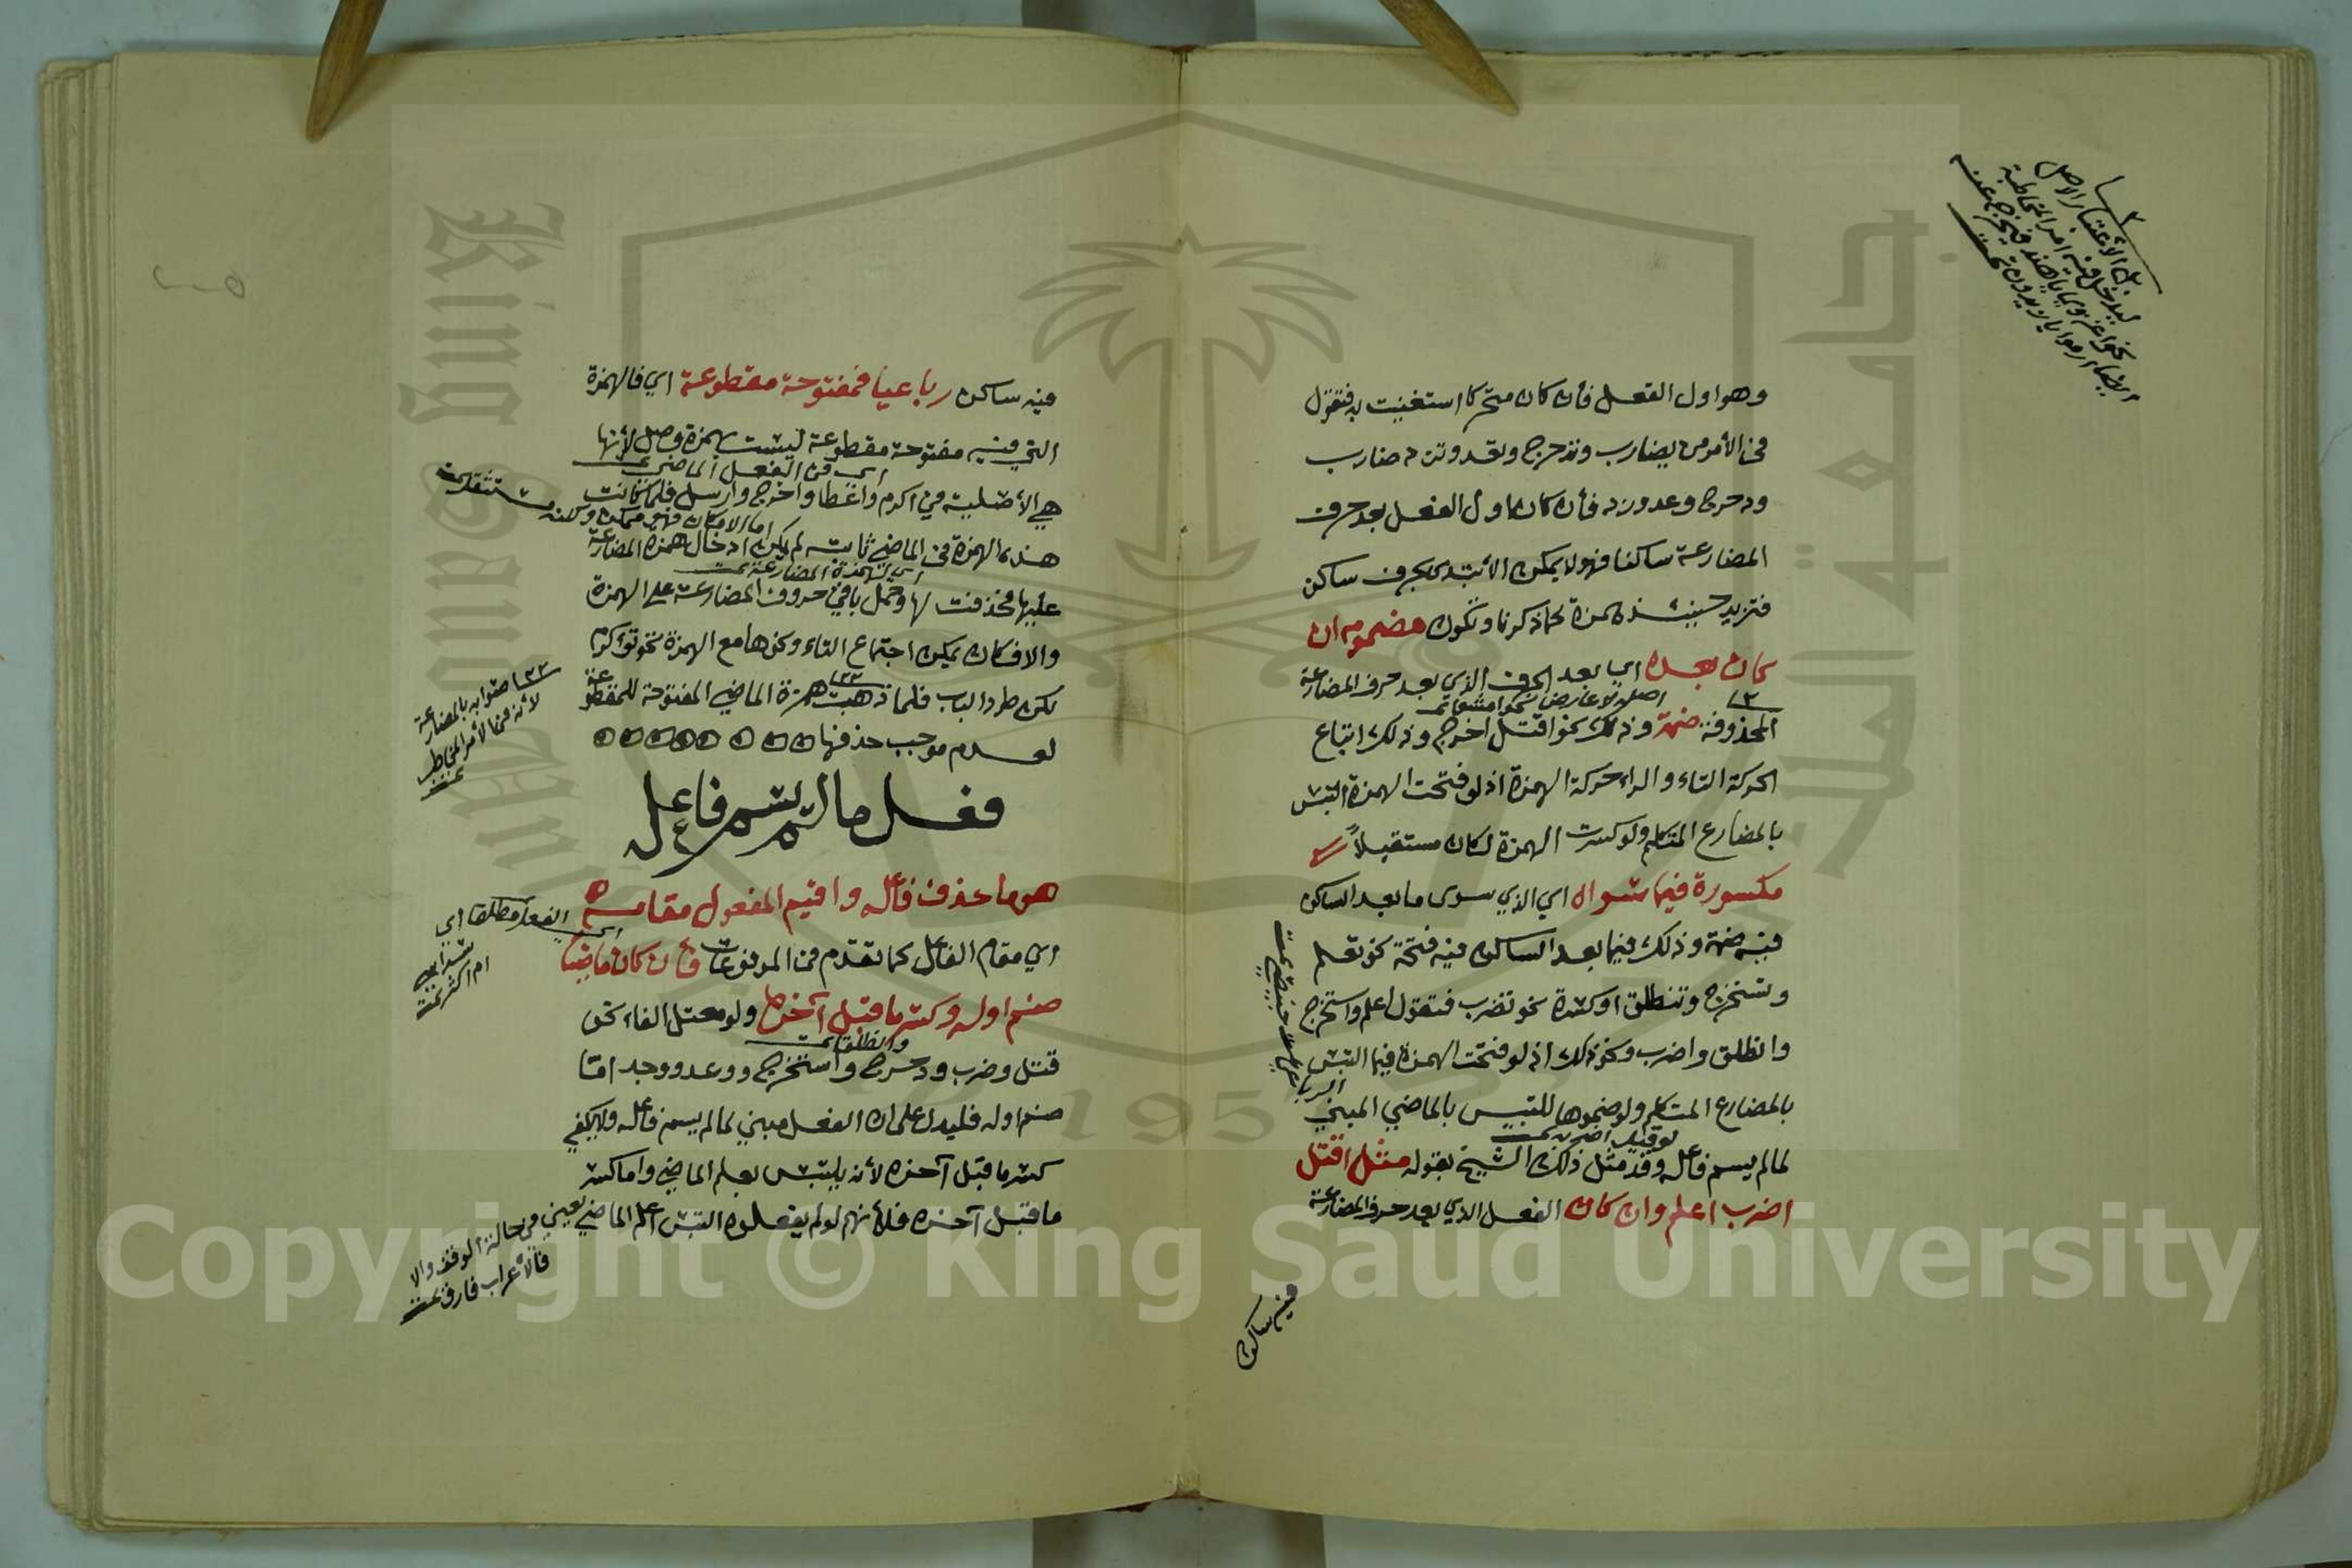 وهو اول الفعل فأن كان متحركا استغنيت به فتقول
في الأمر من يضارب وتدحرج وتعد وتزد ضارب
ودحرج وعد وزد فأن كان اول الفعل بعد حرف
المضارعة ساكنا فهو لا يمكن الأبتدى بحرف ساكن
فتزيد حينئذ همزة كما ذكرنا وتكون مضمومه ان
كان بعده اي بعد الحرف الذي بعد حرف المضارعة
المحذوفة ضمة وذلك نحو اقتل اخرج وذلك اتباع
الحركة التاء والراء حركة الهمزة اذ لو فتحت الهمزة التبس
بالمضارع المتكلم ولو كسرت الهمزة لكان مستقيلاً
مكسورة فيما سواه اي الذي سوى ما بعد الساكن
فيه ضمة وذلك فيما بعد الساكن فيه فتحة نحو تعلم
وتستخرج وتنطلق او كسرة نحو تضرب فتقول اعلم واستخرج
وانطلق واضرب ونحو ذلك اذ لو فتحت الهمزة فيها التبس
بالمضارع المتكلم ولو ضموها للتبس بالماضي المبني
لمالم يسم فاعله وقد مثل ذلك الشيخ بقوله مثل اقتل
اضرب اعلم وان كان الفعل الذي بعد حرف المضارعة
فيه ساكن
فيه ساكن رباعيا فمفتوحة مقطوعة اي فالهمزة
التي فيه مفتوحة مقطوعة ليست بهمزة وصل لأنها
اي في الفعل الماضي
هي الأصلية في اكرم واعطا واخرج وارسل فلما كانت
اما الامكان فهو ممكن ولكنه مستثقل
هذه الهمزة في الماضي ثابتة لم يكن ادخال همزة المضارعة
اي لهمزة المضارعة
عليها فحذفت لها وحمل باقي حروف المضارعة على الهمزة
والا فكان يمكن اجتماع التاء ونحوها مع الهمزة نحو تؤكرم
لكن طرد الباب فلما ذهبت همزة الماضي المفتوحة المقطوعة
لعدم موجب حذفها
صوابه بالمضارعة
لأنه في الأمر المخاطب
فعل مالم يسم فاعله
هو ما حذف فاعله واقيم المفعول مقامه
اي مقام الفاعل كما تقدم في المرفوعات فأن كان ماضيا
ضم اوله وكسر ما قبل آخره ولو معتل الفاء نحو
وانطلق
قتل وضرب ودحرج واستخرج ووعد ووجد اما
ضم اوله فليدل على ان الفعل مبني لمالم يسم فاعله ولا يكفي
كسر ما قبل آخره لأنه يلتبس بعلم الماضي واما كسر
ما قبل آخره فلأنهم لو لم يفعلوه التبس اعلم الماضي
يعني في حالة الوقف والا
فالأعراب فارق
Copyright © King Saud University
King Saud
1957